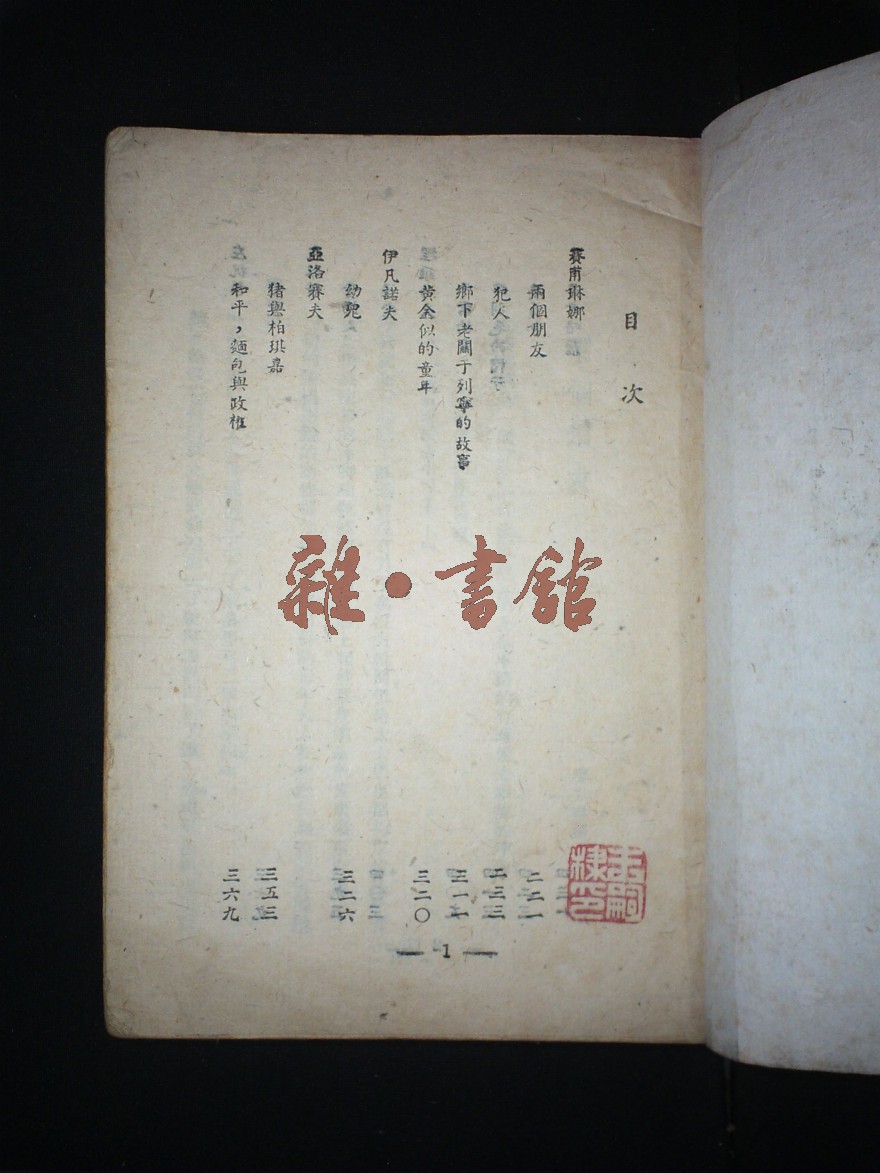 目 次
賽甫琳娜
兩個朋友 二二一
犯人 二三三
鄉下老關于列寧的故事 三一一
黃金似的童年 三二〇
伊凡諾夫
幼兒 三二六
亞洛賽夫
豬與柏琪嘉 三五三
和平，麵包與政權 三六九
— 1 —
雜•書館